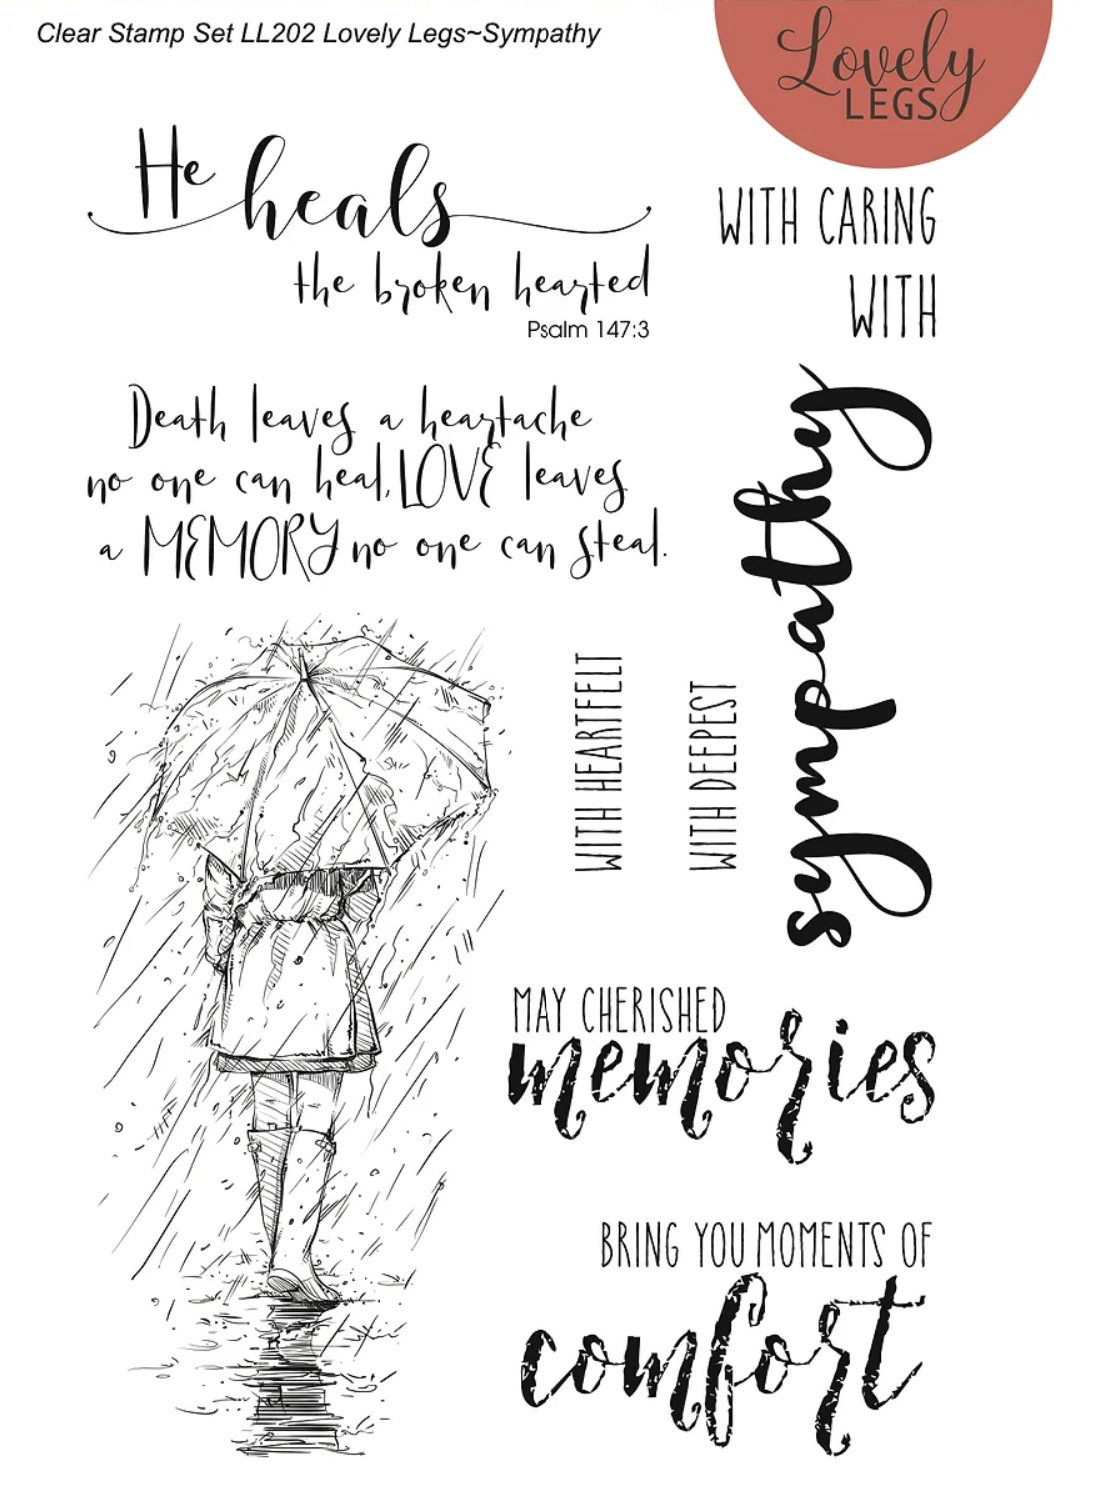 Clear Stamp Set LL202 Lovely Legs~Sympathy
Lovely
LEGS
He heals
the broken hearted
Psalm 147:3
WITH CARING
WITH
sympathy
Death leaves a heartache
no one can heal, LOVE leaves
a MEMORY no one can steal.
WITH HEARTFELT
WITH DEEPEST
MAY CHERISHED
memories
BRING YOU MOMENTS OF
comfort